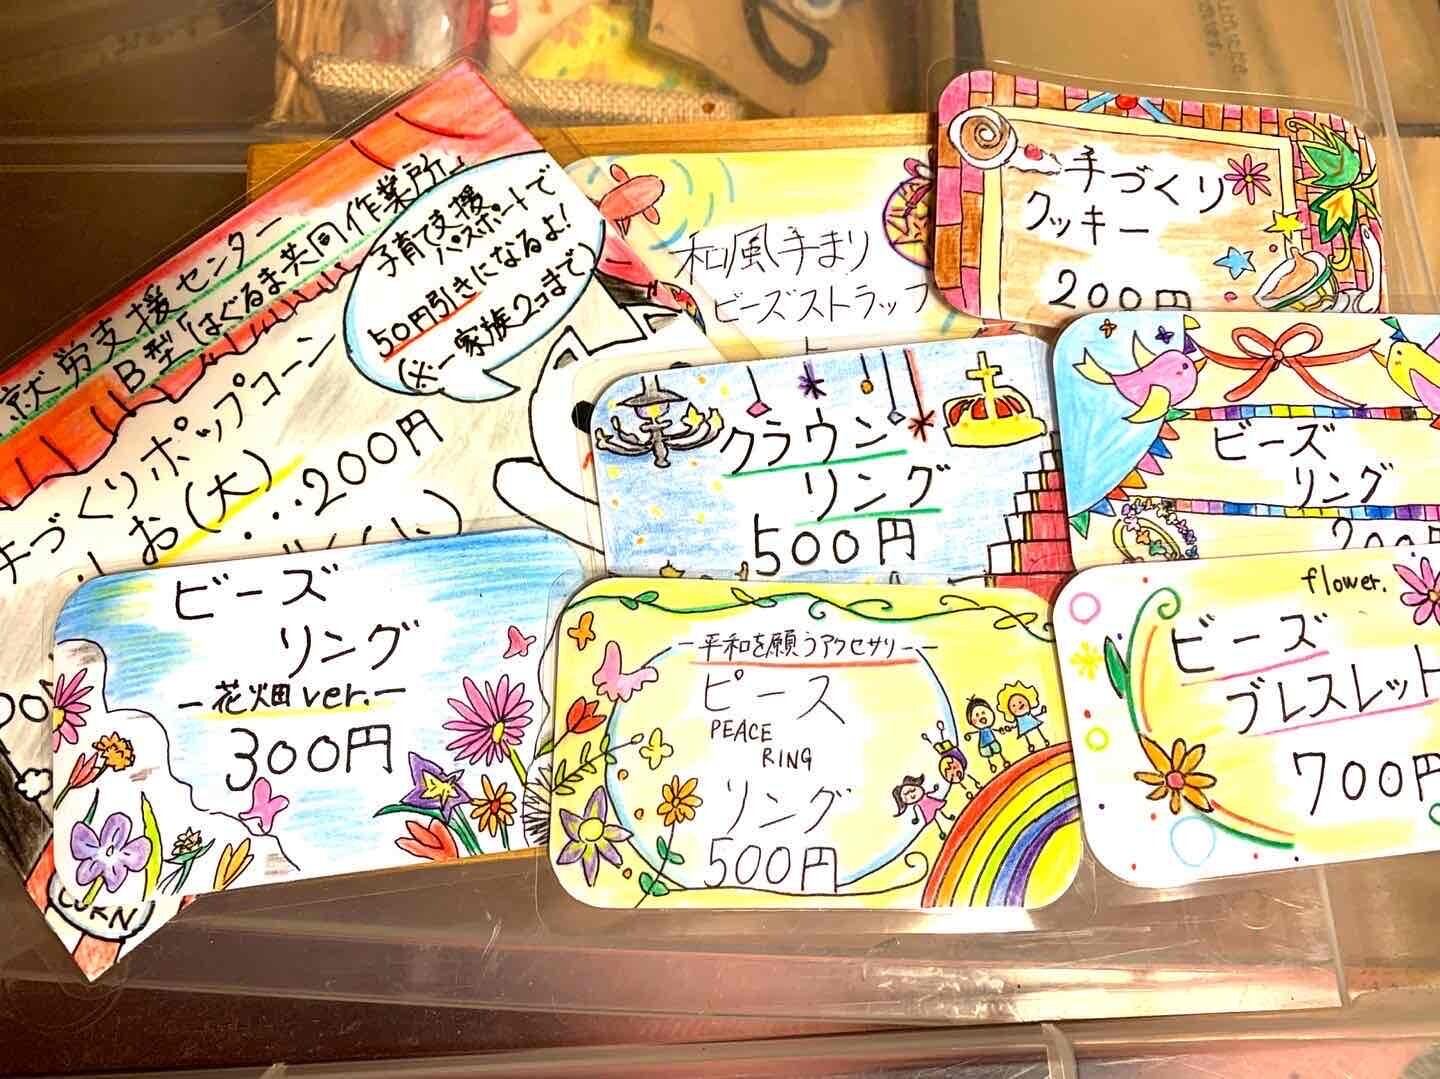 就労支援センター
B型「はぐるま共同作業所」
子育て支援
パスポートで
50円引きになるよ!
(※一家族2コまで)
手づくりポップコーン
しお(大)
...200円
CORN
和風手まり
ビーズストラップ
手づくり
クッキー
200円
クラウン
リング
500円
ビーズ
リング
200円
ビーズ
リング
ー花畑ver.ー
300円
ー平和を願うアクセサリーー
ピース
PEACE
RING
リング
500円
flower.
ビーズ
ブレスレット
700円